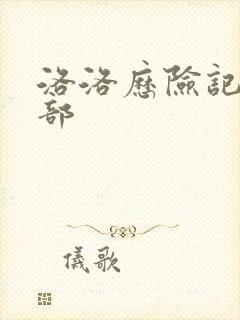 洛洛歷險記
部
儀歌